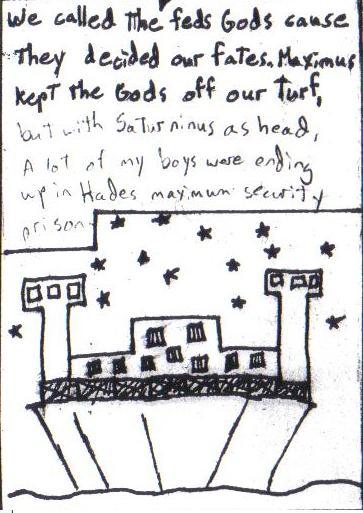 we called the feds Gods cause
They decided our fates. Maximus
kept the Gods off our Turf,
but with Saturninus as head,
A lot of my boys were ending
up in Hades maximum security
prison